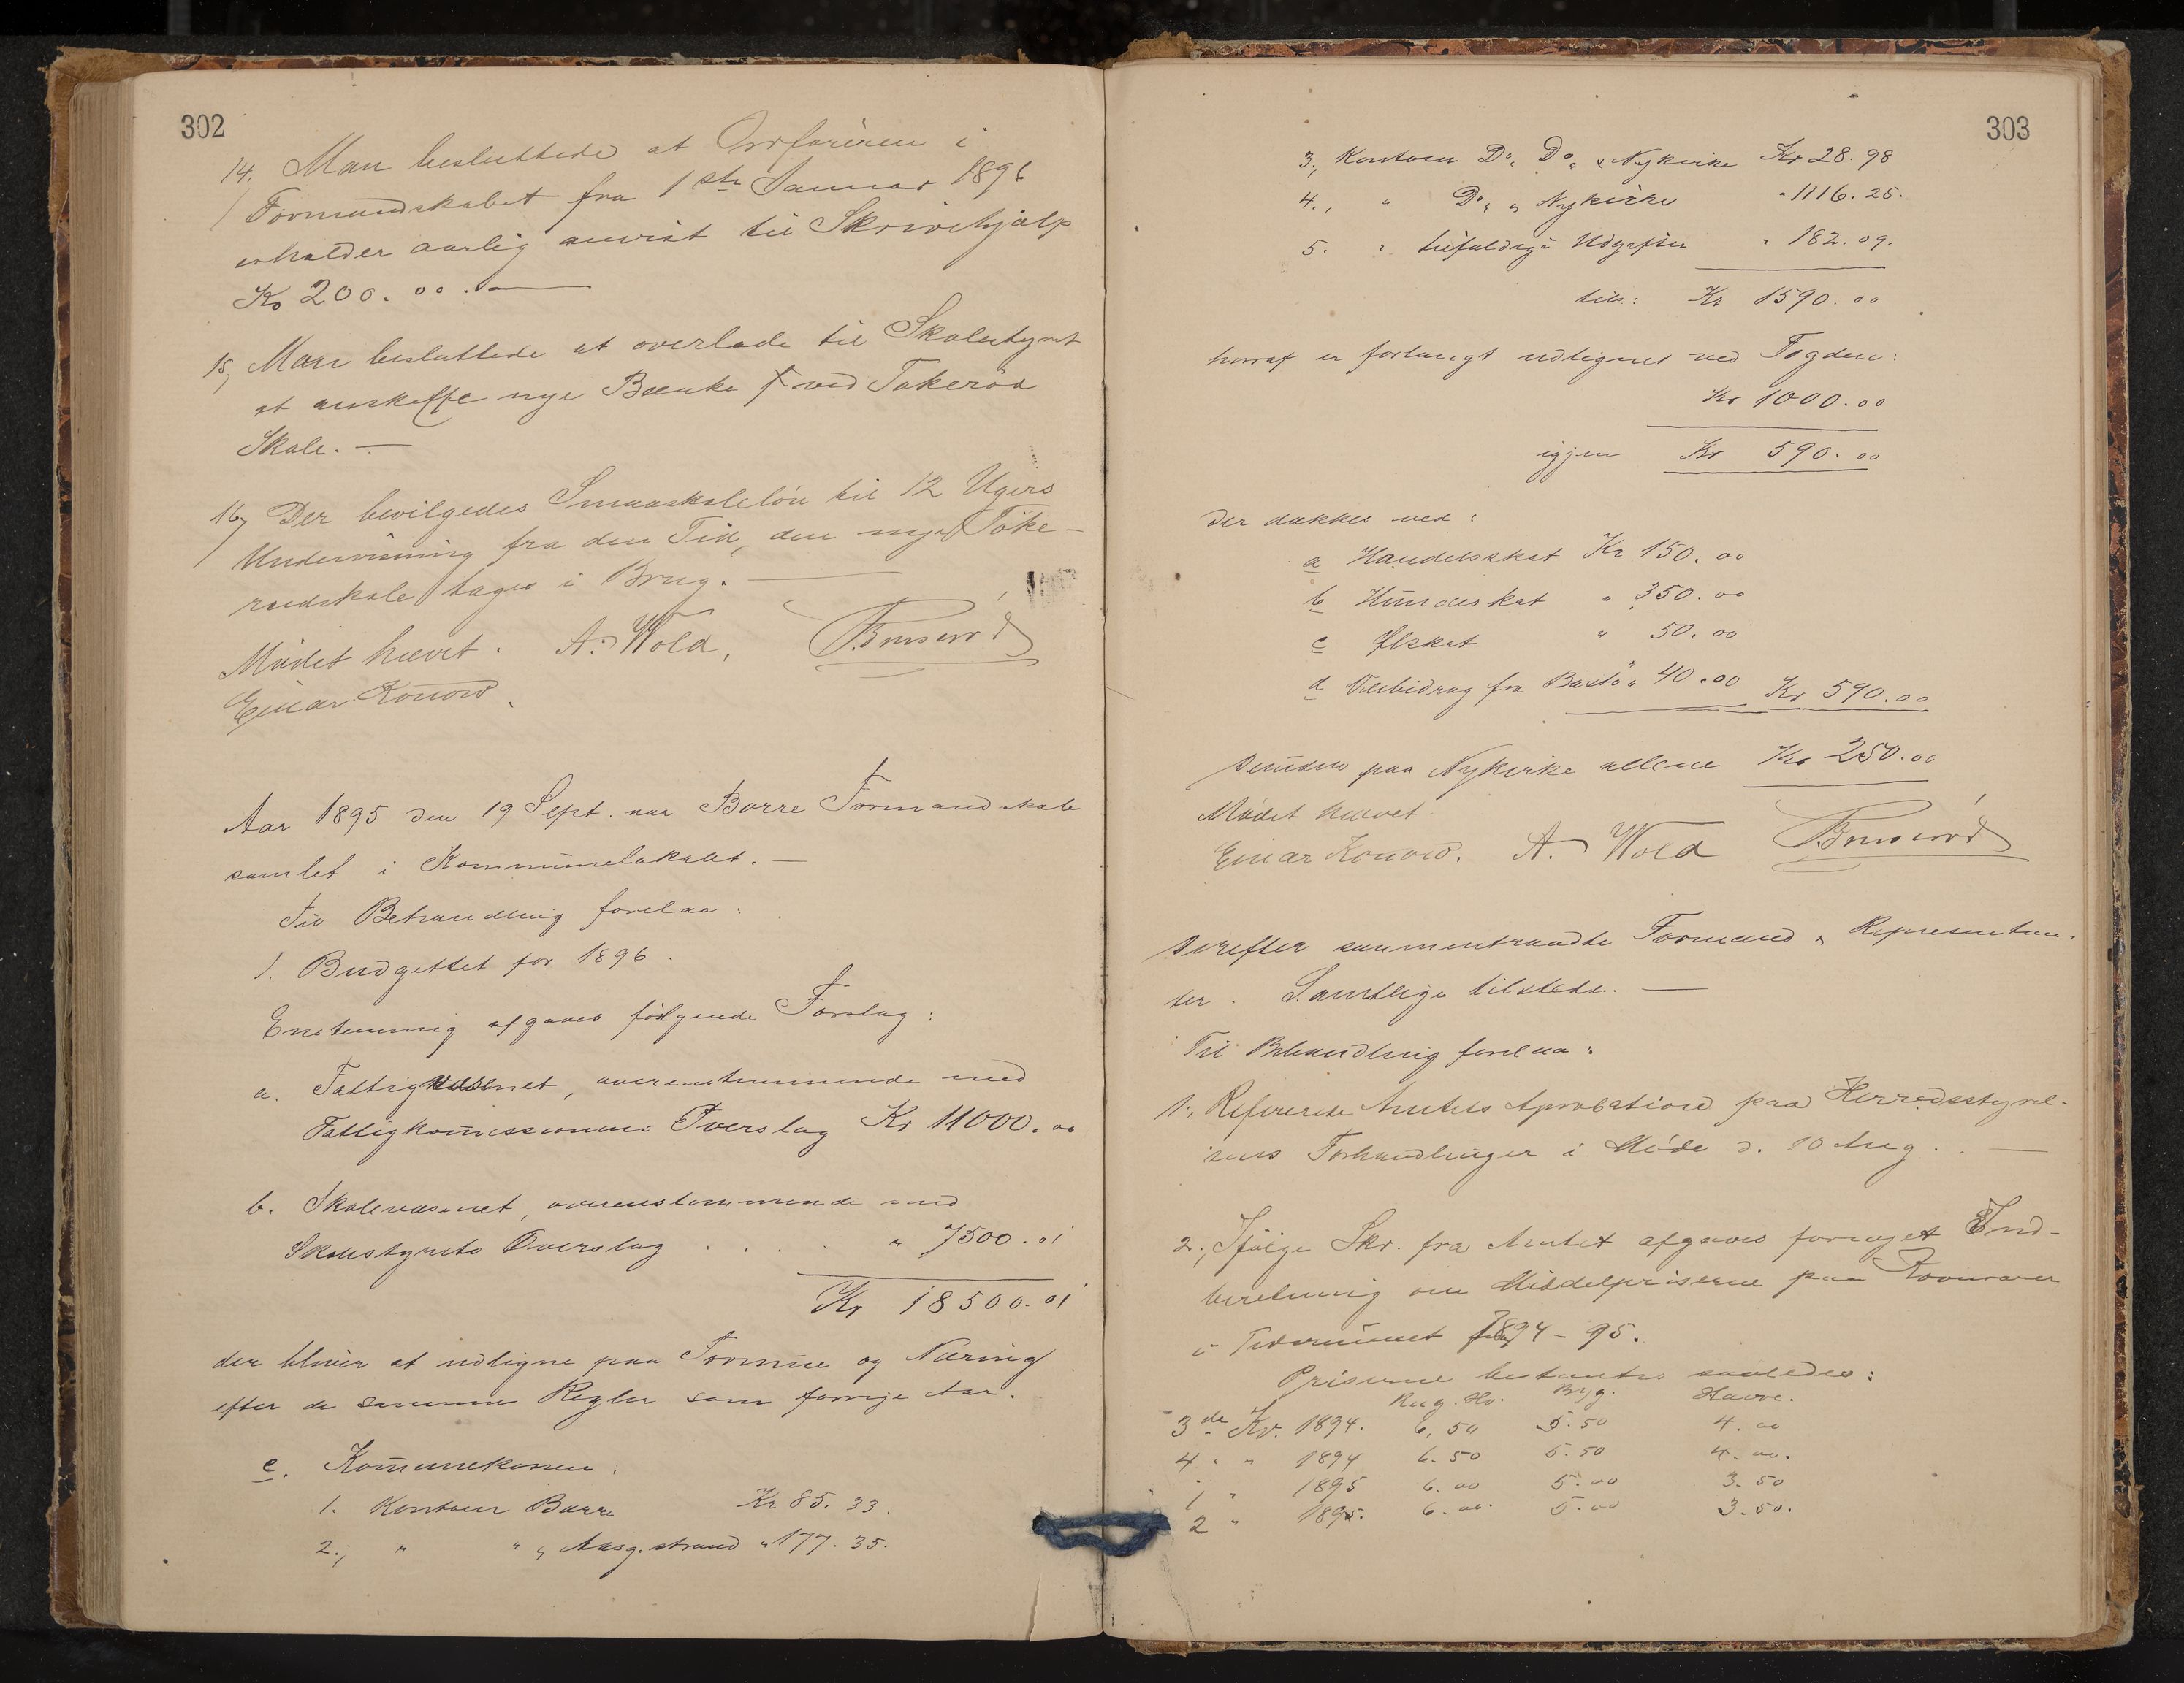 302
14. Man besluttede at Ordføreren i
Formandskabet fra 1ste Januar 1896
erholder aarlig anvist til Skrivehjælp
Kr 200.00.—
15, Man besluttede at overlade til Skolestyret
at anskaffe nye Bænke ved Takerød
Skole. —
16, Der bevilgedes Smaaskoleløn til 12 Ugers
Undervisning fra den Tid, den nye Take-
rødskole tages i Brug. —
Mødet hævet. A. Wold,
Einar Konow.
Aar 1895 den 19 Sept. var Borre Formandskab
samlet i Kommunelokalet. —
Til Behandling forelaa:
1. Budgettet for 1896.
Enstemmig afgaves følgende Forslag:
a. Fattigvæsenet, overenstemmende med
Fattigkommissionens Overslag Kr 11000.00
b. Skolevæsenet, overenstemmende med
Skolestyrets Overslag . . . " 7500.01
Kr 18500.01
der bliver at udligne paa Formue og Næring
efter de samme Regler som forrige Aar.
c. Kommunekassen:
1. Kontoen Borre Kr 85.33.
2., " " & Aasg.strand " 177.35.
303
3., Kontoen Do, Do, & Nykirke Kr 28.98
4., " Do, & Nykirke " 1116.25.
5. " tilfældige Udgifter " 182.09.
tils: Kr 1590.00
hvoraf er forlangt udlignet ved Fogden:
Kr 1000.00
igjen Kr 590.00
der dækkes ved:
a Handelsskat Kr 150.00
b Hundeskat " 350.00
c Ølskat " 50.00
d Veibidrag fra Bastø " 40.00 Kr 590.00
desuden paa Nykirke allene Kr 250.00
Mødet hævet
Einar Konow. A. Wold
Derefter sammentraadte Formænd & Repræsentan-
ter. Samtlige tilstede. —
Til Behandling forelaa:
1., Refererede Amtets Aprobation paa Herredsstyrel-
sens Forhandlinger i Møde d. 10 Aug. —
2., Ifølge Skr. fra Amtet afgaves fornyet Ind-
beretning om Middelpriserne paa Kornvarer
i Tidsrummet 1894-95.
Priserne bestemtes saaledes:
Rug. Hv. Byg. Havre.
3de Kv. 1894. 6,50 5.50 4.00
4 " " 1894 6.50 5.50 4.00.
1 " 1895 6.00 5.00 3.50
2 " 1895. 6.00. 5.00 3.50.